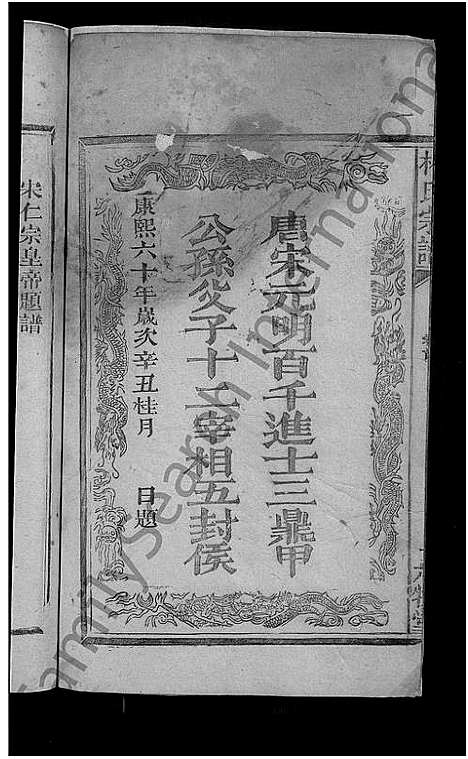 氏宗譜
唐宋元明百千進士三鼎甲
公孫父子十二宰相五封侯
康熙六十年歲次辛丑桂月 日題
宋仁宗皇帝題譜
FamilySearch International